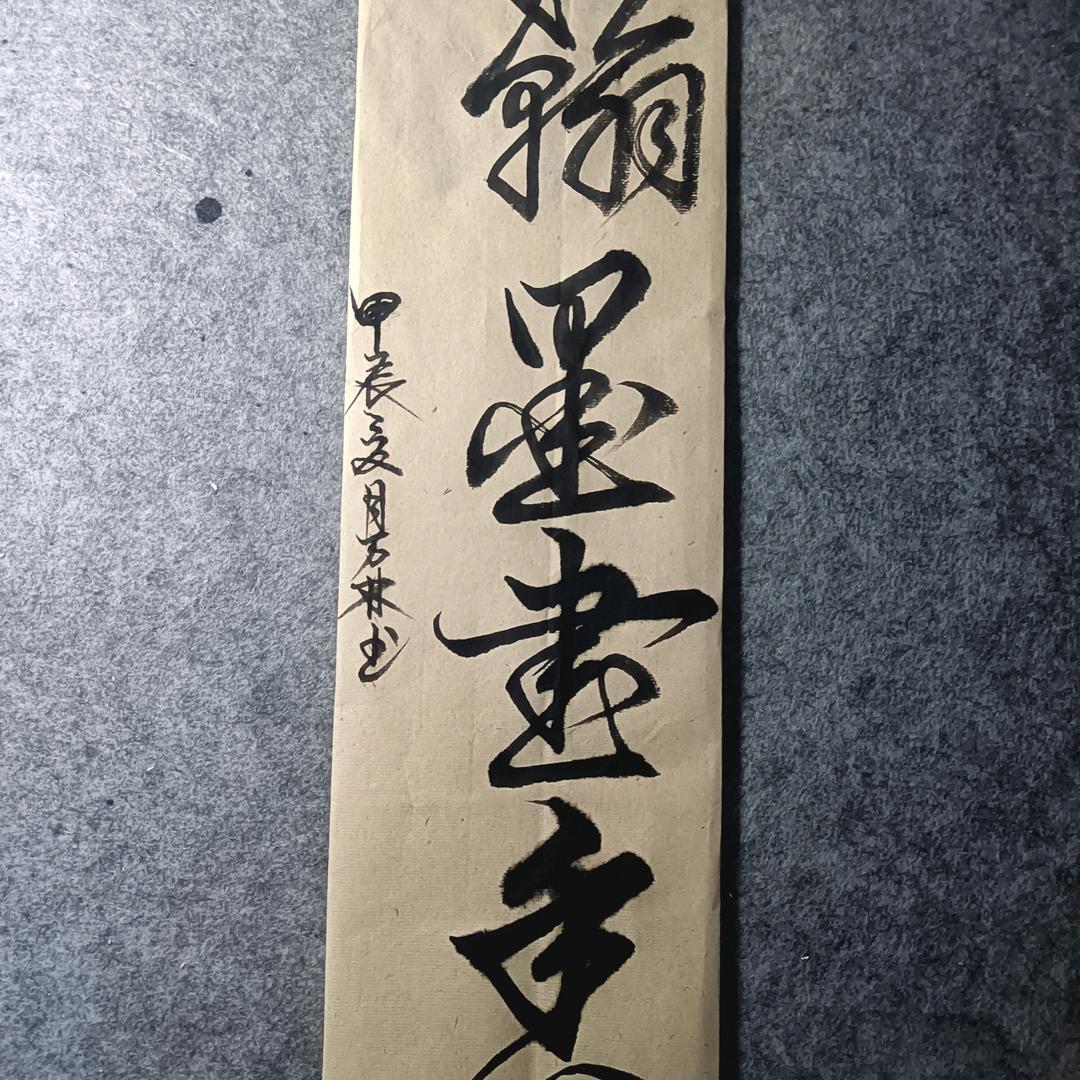 翰墨畫香
甲辰夏月方林书